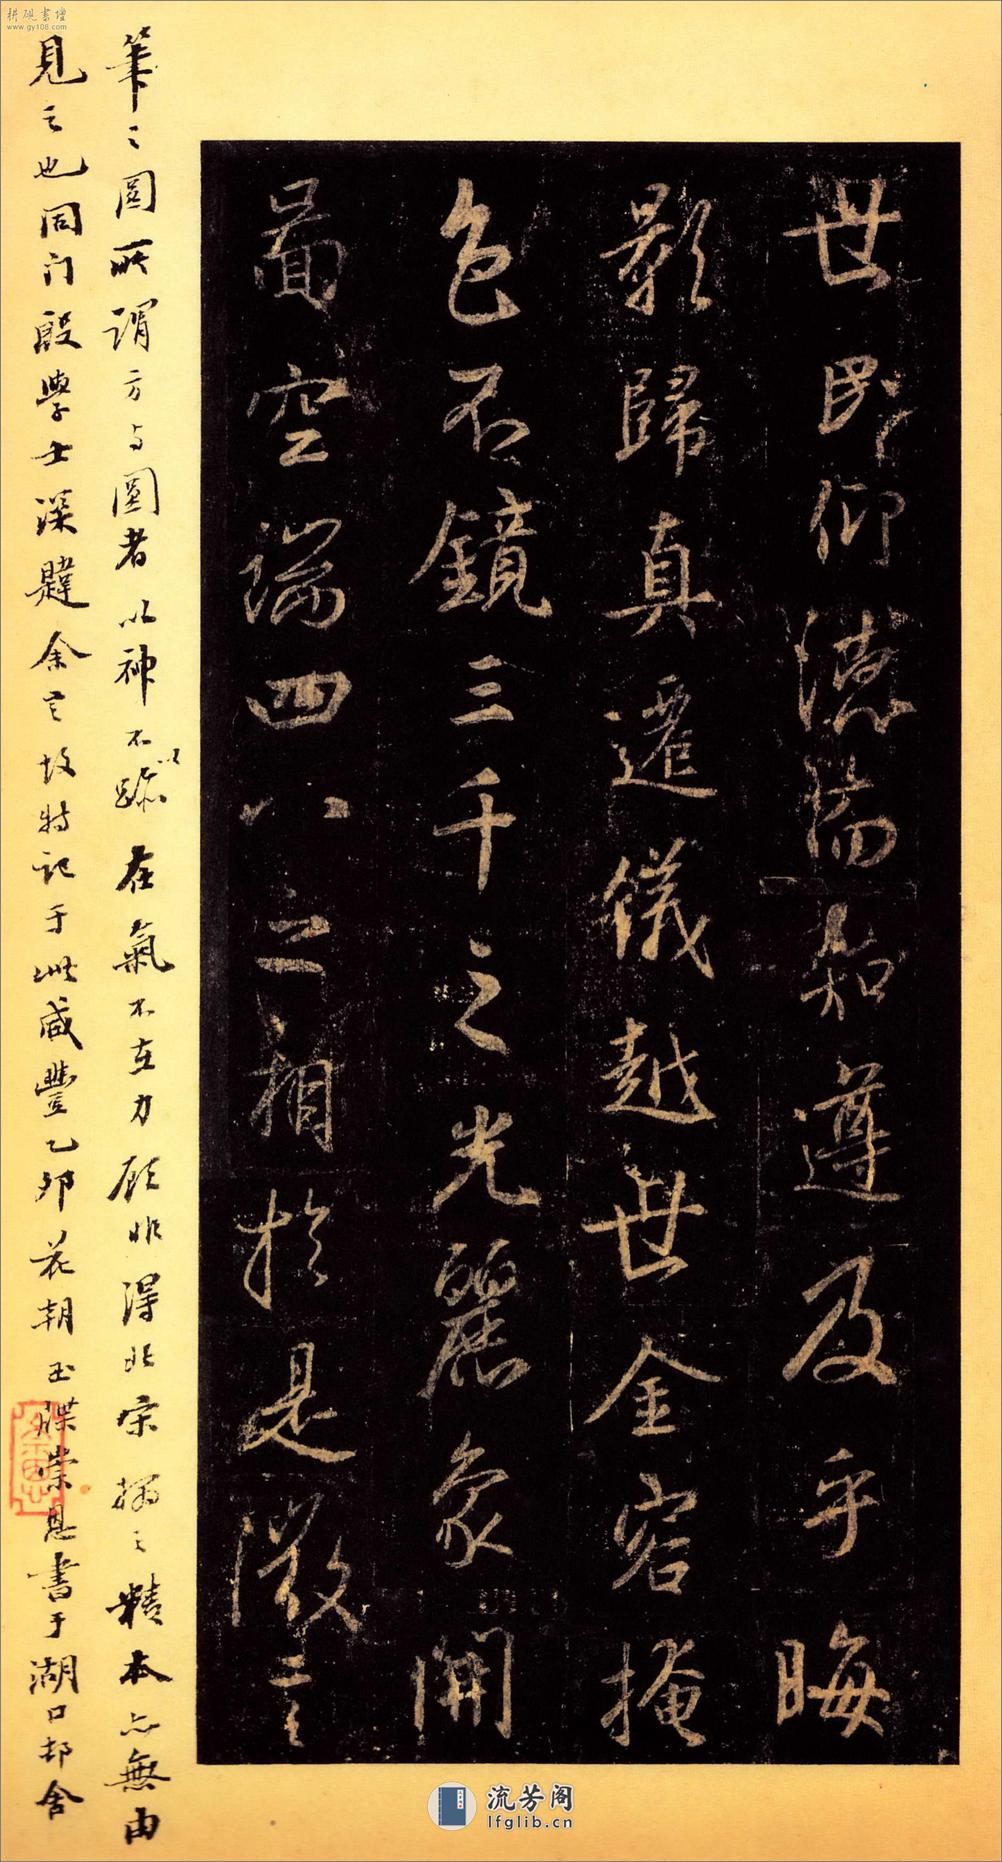 耕硯書壇
www.gy108.com
世民仰德而知遵及乎晦
影歸真遷儀越世金容掩
色不鏡三千之光麗象開
啚空端四八之相於是微言
筆之圓所謂方与圓者以神不以蹤在氣不在力顧非得北宋搨之精本亦無由
見之也同门殷學士深韙余言故特記于此咸豐乙卯花朝玉牒崇恩書于湖口邨舍
崇恩
流芳阁
lfglib.cn